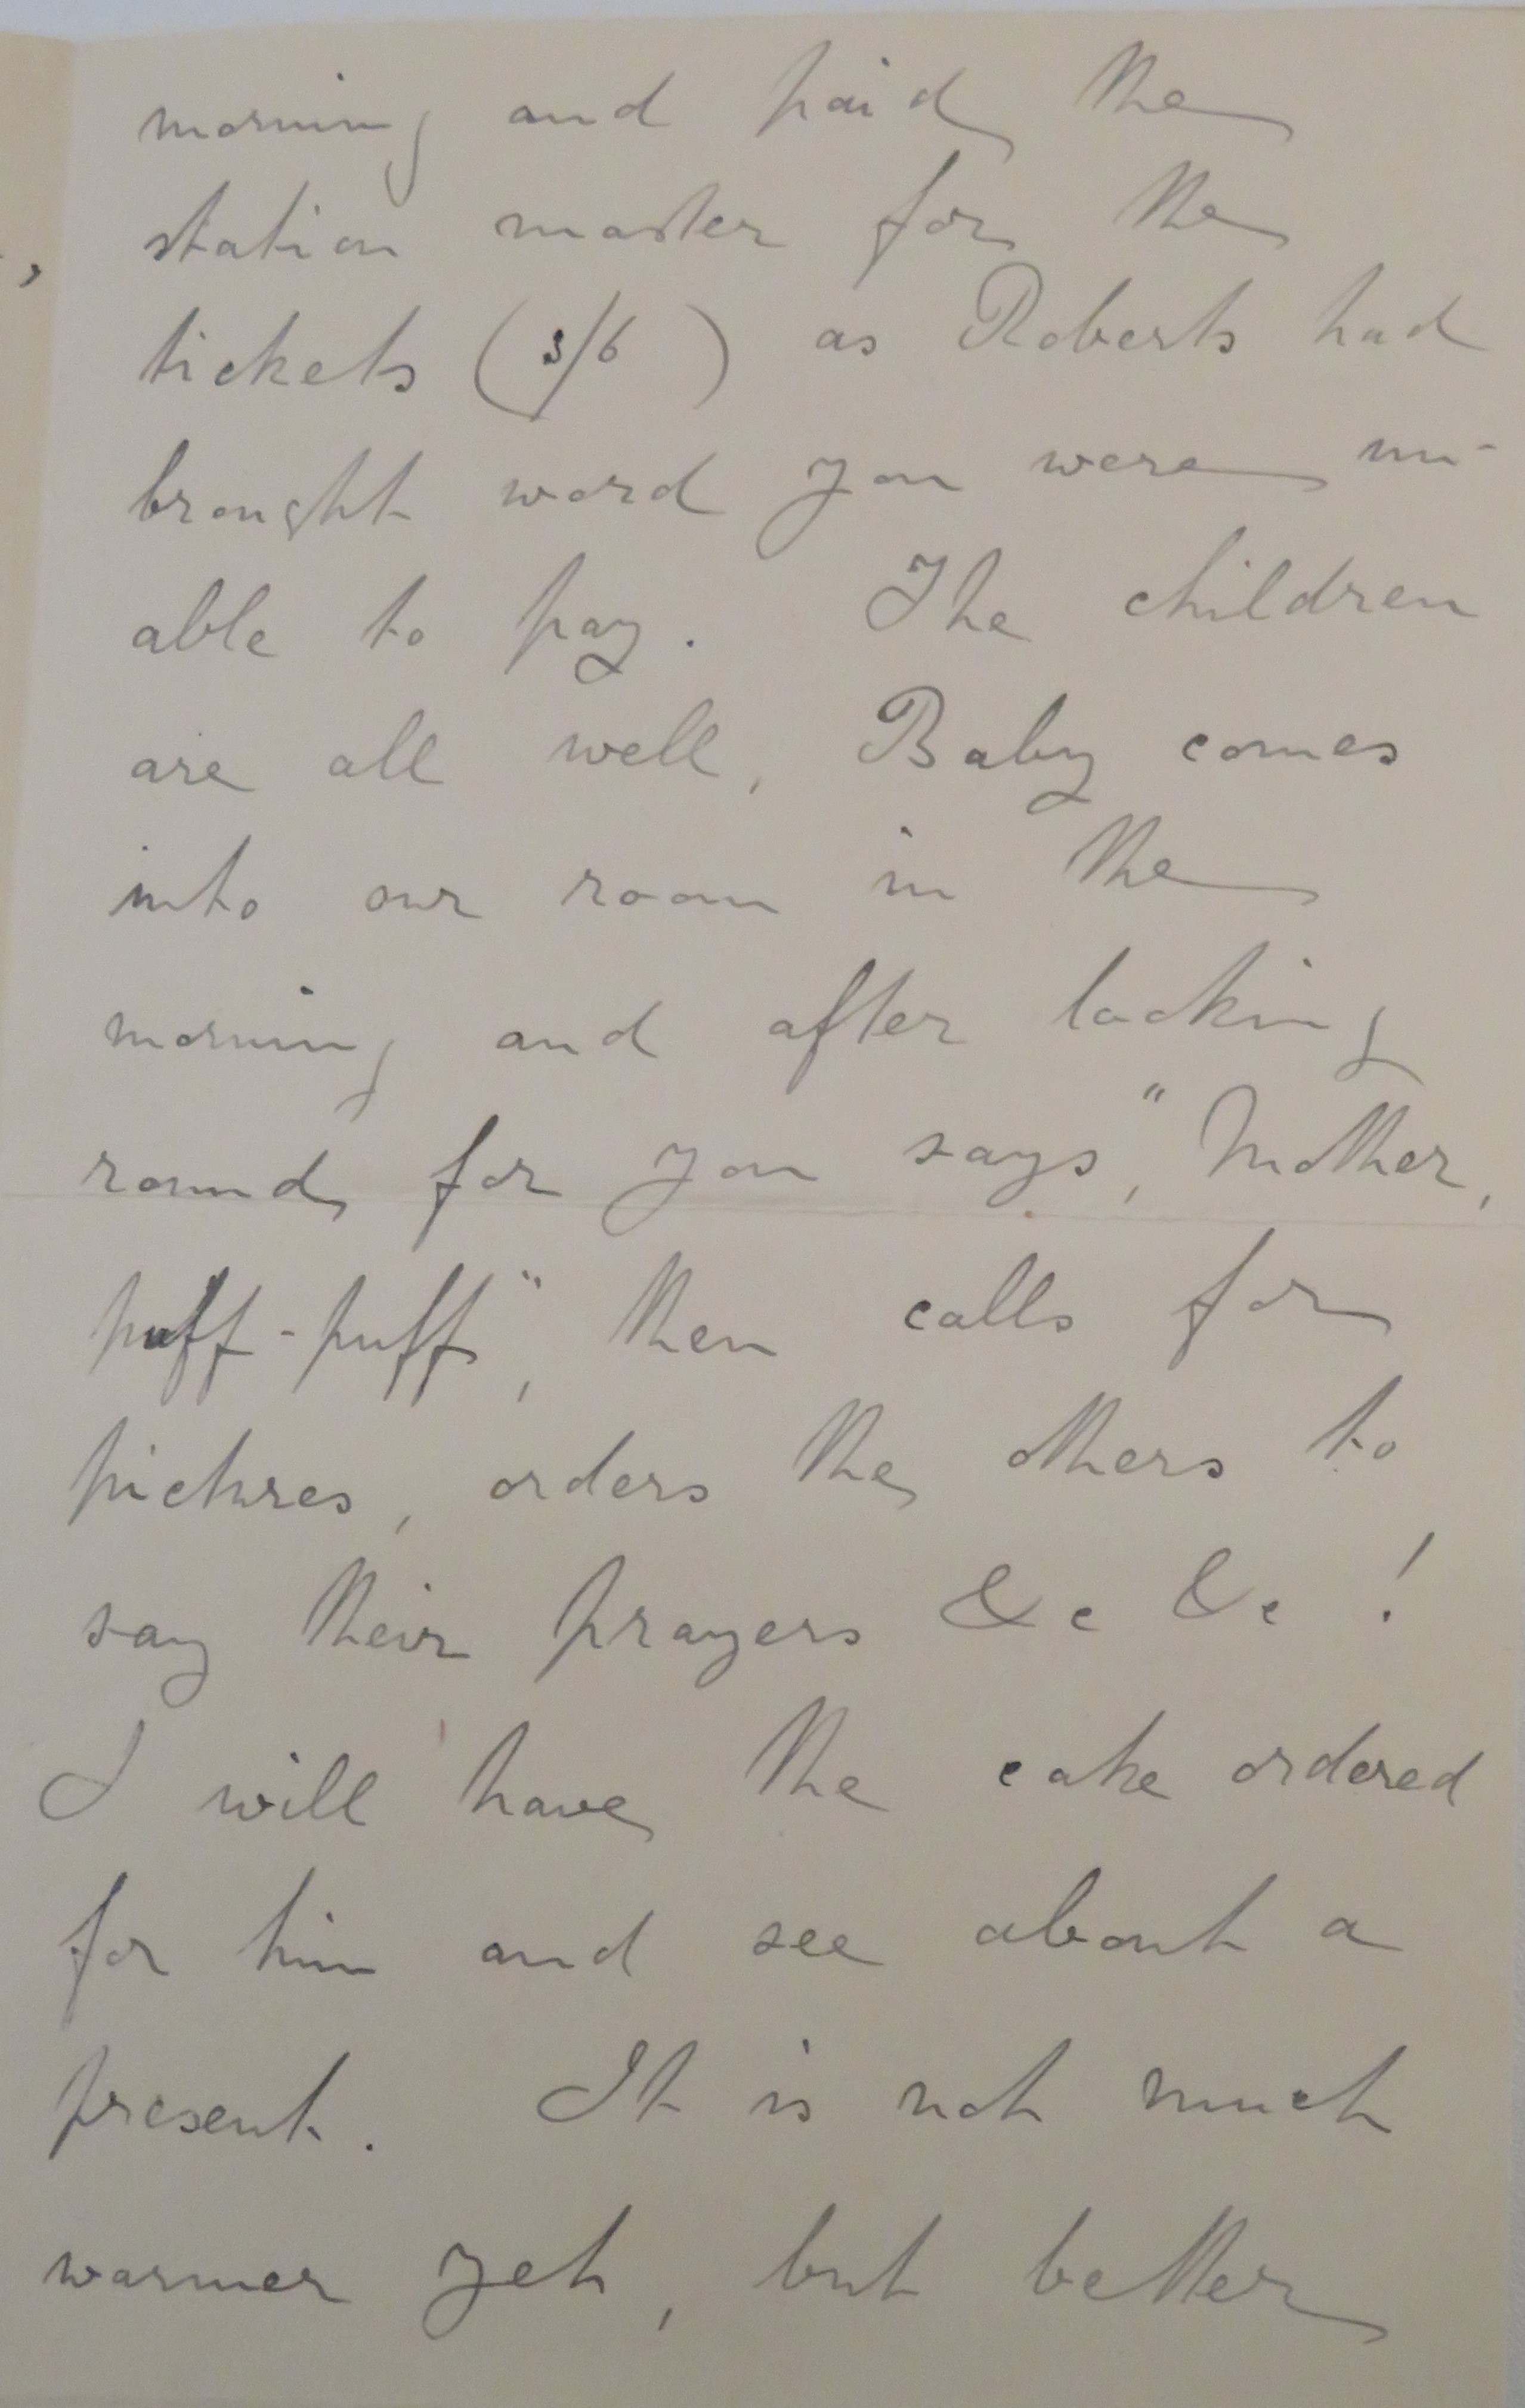 morning and paid the
station master for the
tickets (3/6) as Roberts had
brought word you were un-
able to pay. The children
are all well, Baby comes
into our room in the
morning and after looking
round for you says, "Mother,
puff-puff", then calls for
pictures, orders the others to
say their prayers &c &c!
I will have the cake ordered
for him and see about a
present. It is not much
warmer yet, but better